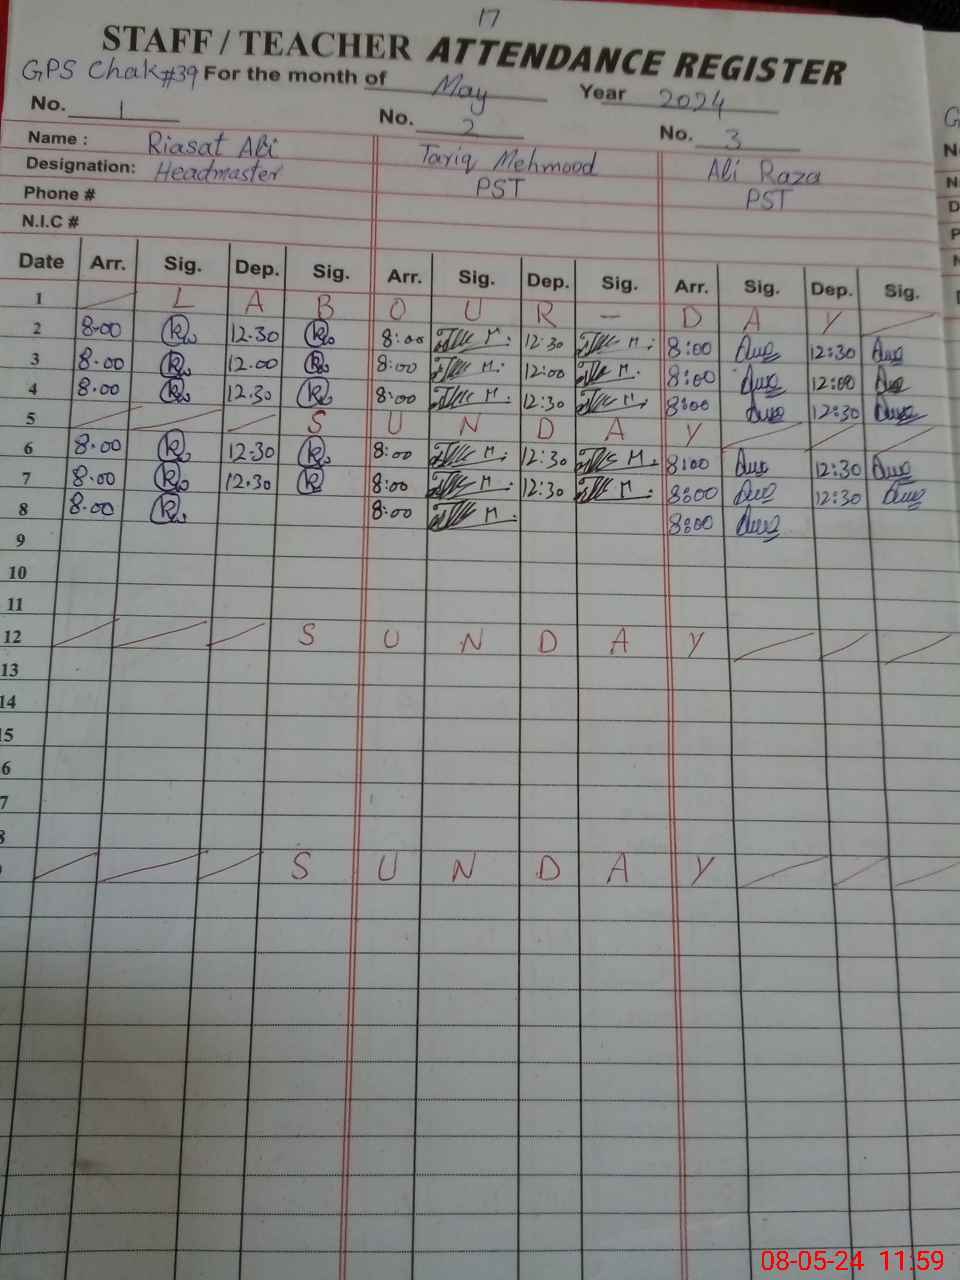 17
STAFF / TEACHER ATTENDANCE REGISTER
GPS Chak#39 For the month of May Year 2024
No. 1 No. 2 No. 3
Name : Riasat Ali Tariq Mehmood Ali Raza
Designation: Headmaster PST PST
Phone #
N.I.C #
Date Arr. Sig. Dep. Sig. Arr. Sig. Dep. Sig. Arr. Sig. Dep. Sig.
1 L A B O U R - D A Y
2 8.00 12.30 8:00 12:30 8:00 12:30
3 8.00 12.00 8:00 12:00 8:00 12:00
4 8.00 12.30 8:00 12:30 8:00 12:30
5 S U N D A Y
6 8.00 12.30 8:00 12:30 8:00 12:30
7 8.00 12.30 8:00 12:30 8:00 12:30
8 8.00 8:00 8:00
9
10
11
12 S U N D A Y
13
14
15
6
7
8
S U N D A Y
08-05-24 11:59